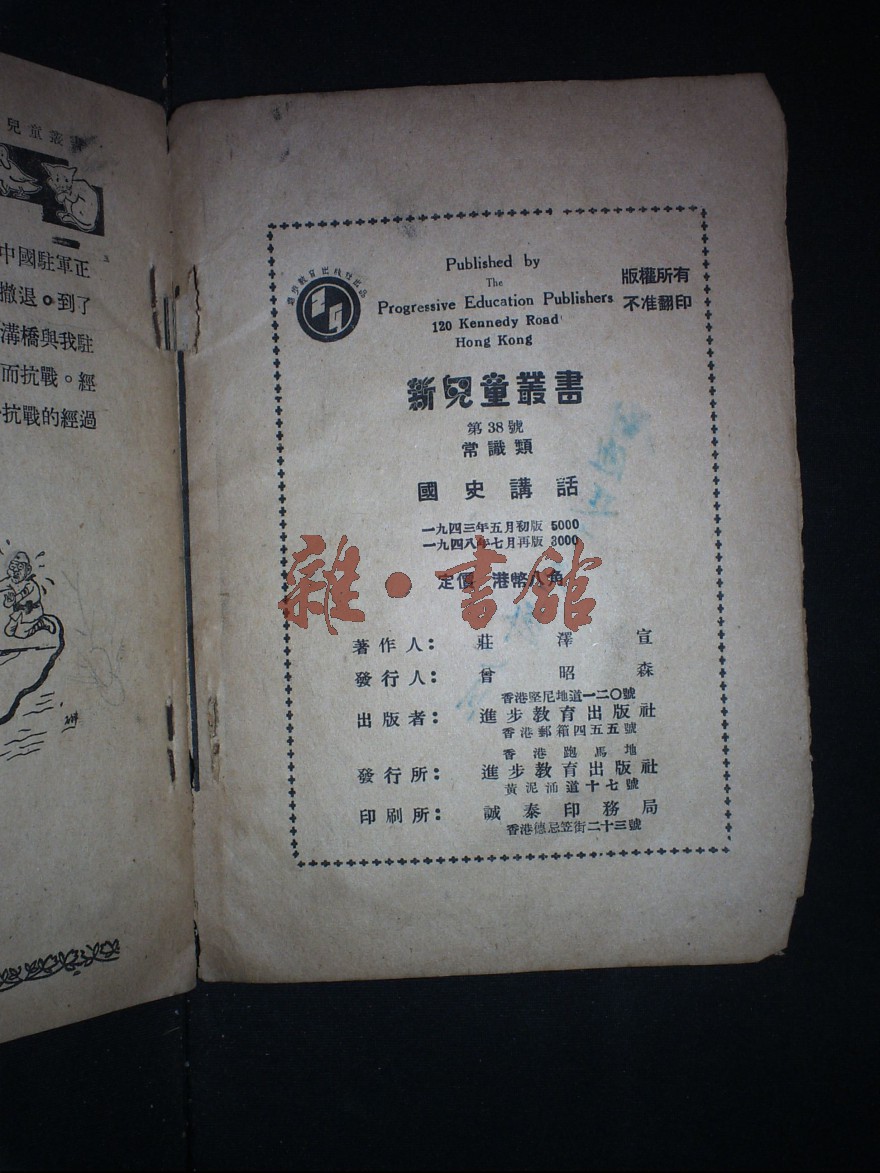 兒童叢書
中國駐軍正
撤退。到了
溝橋與我駐
而抗戰。經
抗戰的經過
Published by
The
Progressive Education Publishers
120 Kennedy Road
Hong Kong
版權所有
不准翻印
新兒童叢書
第38號
常識類
國史講話
一九四三年五月初版 5000
一九四八年七月再版 3000
定價 港幣八角
雜·書館
著作人: 莊澤宣
發行人: 曾昭森
香港堅尼地道一二〇號
出版者: 進步教育出版社
香港郵箱四五五號
香港跑馬地
發行所: 進步教育出版社
黃泥涌道十七號
印刷所: 誠泰印務局
香港德忌笠街二十三號